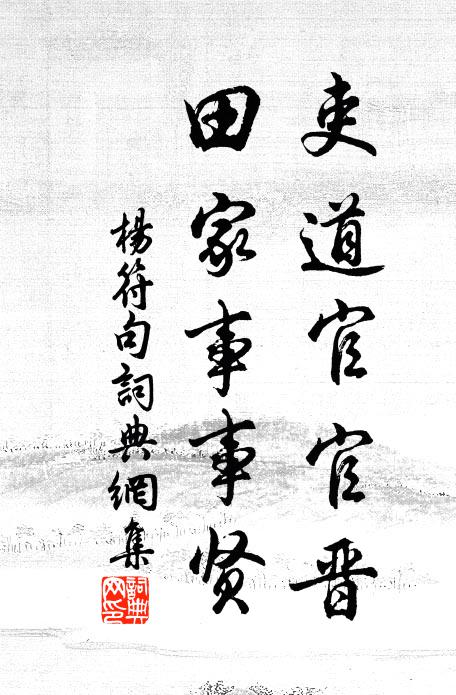 吏道官官晋
田家事事贤
楊符句詞典網集
詞典网印